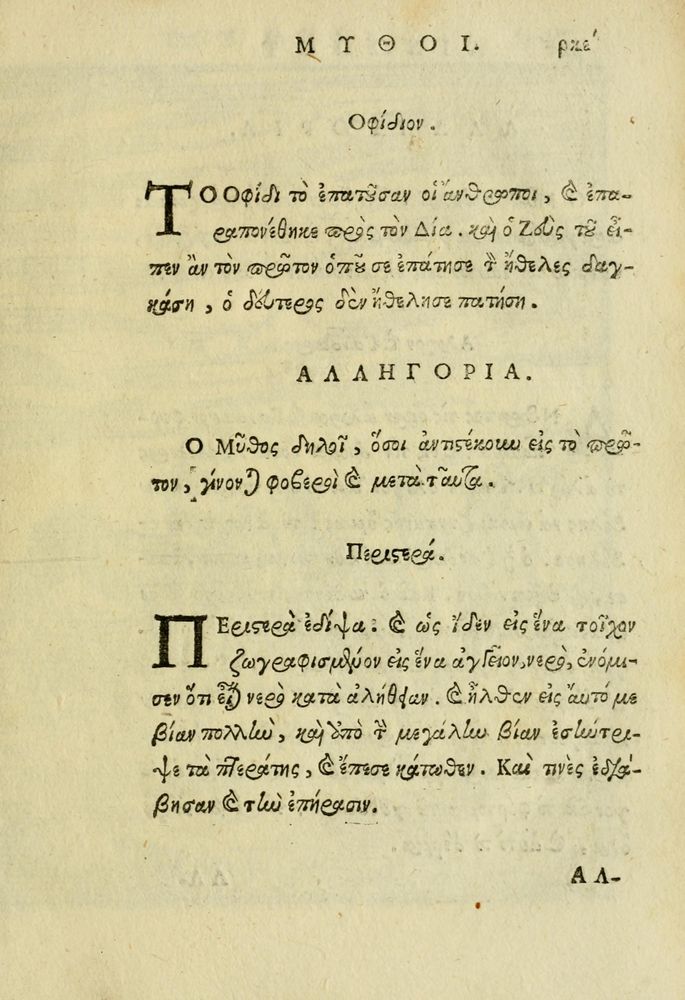 ΜΥΘΟΙ. ρκεʹ
Οφίδιον.
ΤΟ Οφίδι τὸ ἐπατοῦσαν οἱ ἄνθρωποι, καὶ ἐπα-
ραπονέθηκε πρὸς τὸν Δία. καὶ ὁ Ζεὺς τοῦ εἶ-
πεν ἂν τὸν πρῶτον ὁποῦ σε ἐπάτησε τὸν ἤθελες δαγ-
κάση, ὁ δεύτερος δὲν ἤθελησε πατήση.
ΑΛΛΗΓΟΡΙΑ.
Ο Μῦθος δηλοῖ, ὅσοι ἀντιστέκουν εἰς τὸ πρῶ-
τον, γίνονται φοβεροὶ καὶ μετὰ ταῦτα.
Περιστερά.
ΠΕριστερὰ ἐδίψα. καὶ ὡς ἴδεν εἰς ἕνα τοῖχον
ζωγραφισμένον εἰς ἕνα ἀγγεῖον νερὸ, ἐνόμι-
σεν ὅτι εἶναι νερὸ κατὰ ἀλήθειαν. καὶ ἦλθεν εἰς αὐτό με
βίαν πολλὴν, καὶ ἀπὸ τὴν μεγάλην βίαν ἐσύντρι-
ψε τὰ πτεράτης, καὶ ἔπεσε κάτωθεν. Καὶ τινὲς ἐδιά-
βησαν καὶ τὴν ἐπήρασιν.
ΑΛ-